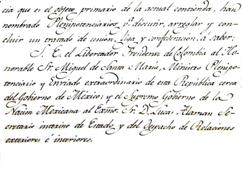 cia que es el objeto primario de la actual contienda, han
nombrado Plenipotenciarios, á discutir, arreglar y con-
cluir un tratado de union, liga y confederacion á saber:
S. E. el Libertador Presidente de Colombia al Ho-
norable Sr. Miguel de Santa Maria, Ministro Plenipo-
tenciario y Enviado extraordinario de esta Republica cerca
del Gobierno de México; y el Supremo Gobierno de la
Nacion Mexicana al Exmo. Sr. D. Lucas Alaman Se-
cretario interino de Estado y del Despacho de Relaciones
exteriores é interiores.